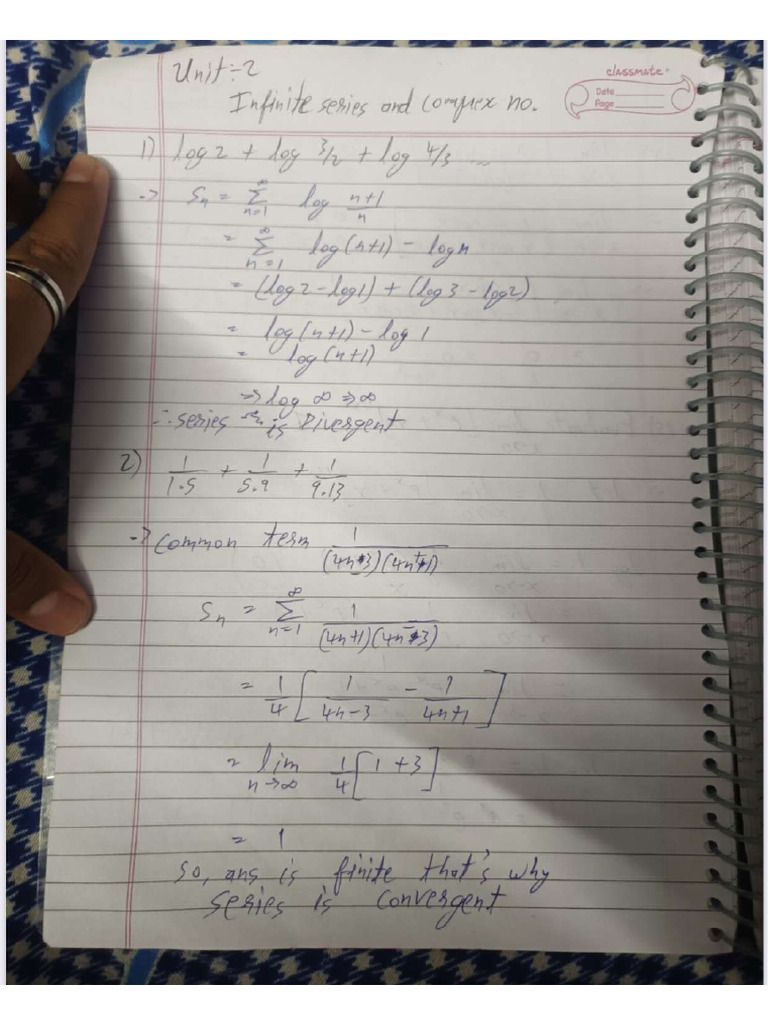 Unit:-2
classmate
Date
Page
Infinite series and complex no.
1) log 2 + log 3/2 + log 4/3 ...
-> Sn = ∞ Σ n=1 log n+1 / n
= ∞ Σ n=1 log(n+1) - log n
= (log2 - log1) + (log3 - log2)
= log(n+1) - log 1
= log(n+1)
=> log ∞ => ∞
∴ series is Divergent
2) 1/1.5 + 1/5.9 + 1/9.13
-> common term 1 / (4n-3)(4n+1)
Sn = ∞ Σ n=1 1 / (4n+1)(4n-3)
= 1/4 [ 1/4n-3 - 1/4n+1 ]
= lim n→∞ 1/4 [1 + 3]
= 1
so, ans is finite that's why
series is convergent